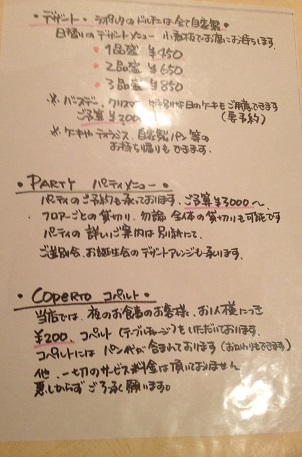 ・デザート・ のドルチェは全て自家製・
日替りのデザートメニュー 小黒板でお席にお持ちします。
・1品盛 ¥450
・2品盛 ¥650
・3品盛 ¥850
※バースデー、クリスマス 特別な日のケーキもご用意できます
ご予算 ¥2000 (要予約)
※ケーキやティラミス、自家製パン等の
お持ち帰りもできます。
・PARTY パーティメニュー・
パーティのご予約も承っております。ご予算¥3000〜。
フロアーごとの貸切り、勿論 全体の貸切りも可能です
パーティの詳しいご案内は別紙にて。
ご送別会、お誕生会のデザートアレンジも承います。
・COPERTO コペルト・
当店では、夜のお食事のお客様、お1人様につき
¥200、コペルト(テーブルチャージ)をいただいております。
コペルトには パン代が含まれております(おかわりもできます)
他、一切のサービス料金は頂いておりません
悪しからず ご了承 願います。